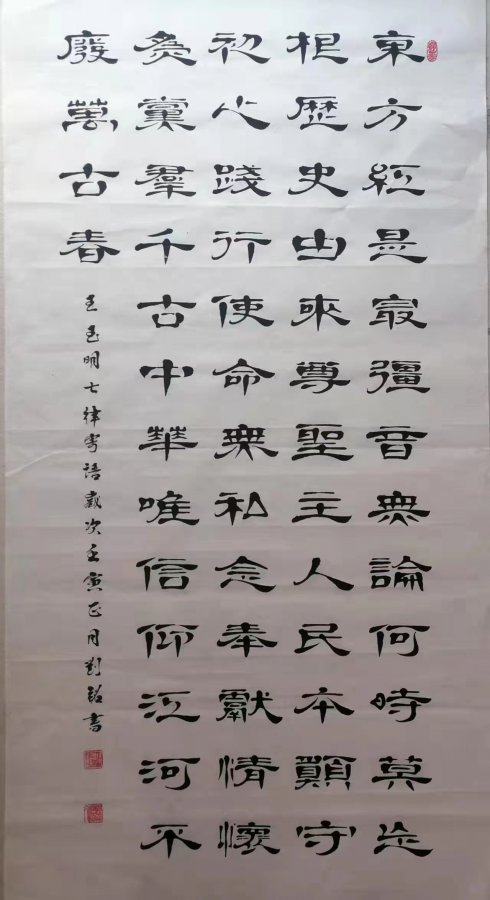 東方紅是冣彊音無論何時莫忘
根歷史由來尊聖主人民本願守
初心踐行使命無私念奉獻情懷
為黨羣千古中華唯信仰江河不
廢萬古春
王玉明七律寄語歲次壬寅正月劉銘書